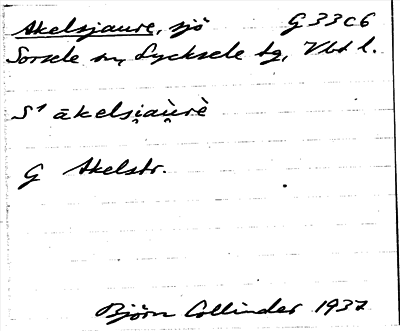 Akelsjaure, sjö G33c6
Sorsele sn, Lycksele tg, Vbt l.
S¹ ākelsi̯au̯rè
G Akelstr.
Björn Collinder 1937